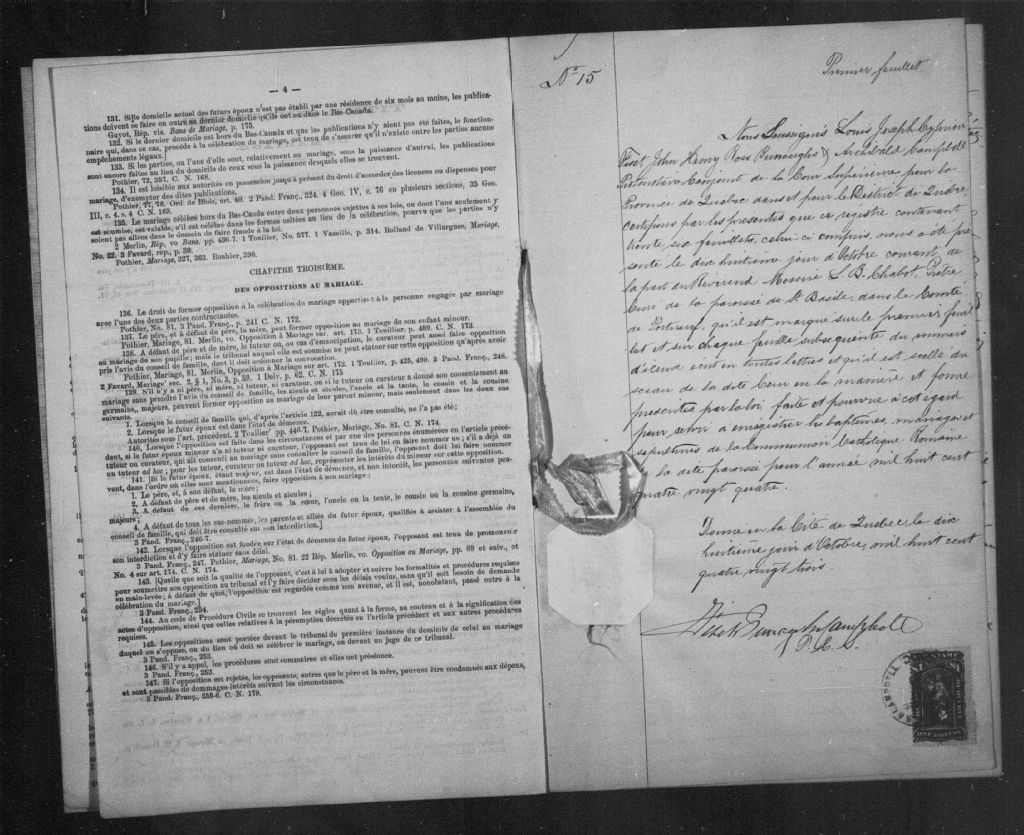 — 4 —
131. Si le domicile actuel des futurs époux n'est pas établi par une résidence de six mois au moins, les publica-
tions doivent se faire en outre au dernier domicile qu'ils ont eu dans le Bas-Canada.
Guyot, Rép. vis. Bans de Mariage, p. 175.
132. Si le dernier domicile est hors du Bas-Canada et que les publications n'y aient pas été faites, le fonction-
naire qui, dans ce cas, procède à la célébration du mariage, est tenu de s'assurer qu'il n'existe entre les parties aucuns
empêchements légaux.]
133. Si les parties, ou l'une d'elle sont, relativement au mariage, sous la puissance d'autrui, les publications
sont encore faites au lieu du domicile de ceux sous la puissance desquels elles se trouvent.
Pothier, 72, 357. C. N. 168.
134. Il est loisible aux autorités en possession jusqu'à présent du droit d'accorder des licences ou dispenses pour
mariage, d'exempter des dites publications.
Pothier, 77, 78. Ord. de Blois, art. 40. 2 Pand. Franç., 324. 4 Geo. IV, c. 76 en plusieurs sections, 35 Geo.
III, c. 4. s. 4 C. N. 169.
135. Le mariage célébré hors du Bas-Canda entre deux personnes sujettes à ses lois, ou dont l'une seulement y
est soumise, est valable, s'il est célébré dans les formes usitées au lieu de la célébration, pourvu que les parties n'y
soient pas allées dans le dessein de faire fraude à la loi.
2 Merlin, Rép, vo Bans, pp. 436-7. 1 Toullier, No. 577. 1 Vazeille, p. 314. Rolland de Villargues, Mariage,
No. 22. 3 Favard, rép., p. 39.
Pothier, Mariage, 327, 363. Bouhier, 390.
CHAPITRE TROISIÈME.
DES OPPOSITIONS AU MARIAGE.
136. Le droit de former opposition à la célébration du mariage appartient à la personne engagée par mariage
avec l'une des deux parties contractantes.
Pothier, No. 81. 3 Pand. Franç., p. 241 C. N. 172.
137. Le père, et à défaut de père, la mère, peut former opposition au mariage de son enfant mineur.
Pothier, Mariage, 81. Merlin, vo. Opposition à Mariage sur. art. 173. 1 Toullier, p. 489. C. N. 173.
138. A défaut de père et de mère, le tuteur on, au cas d'émancipation, le curateur peut aussi faire opposition
au mariage de son pupille; mais le tribunal auquel elle est soumise ne peut statuer sur cette opposition qu'après avoir
pris l'avis du conseil de famille, dont il doit ordonner la convocation.
Pothier, Mariage, 81. Merlin, Opposition à Mariage sur art. 172. 1 Toullier, p. 425, 490. 3 Pand. Franç., 248.
2 Favard, Mariage' sec. 2, § 1, No. 3, p. 59. 1 Delv. p. 62. C. N. 175
139. S'il n'y a ni père, ni mère, ni tuteur, ni curateur, on si le tuteur ou curateur a donné son consentement au
mariage sans prendre l'avis du conseil de famille, les aïeuls et aïeules, l'oncle et la tante, le cousin et la cousine
germains,, majeurs, peuvent former opposition au mariage de leur parent mineur, mais seulement dans les deux cas
suivants.
1. Lorsque le conseil de famille qui, d'après l'article 122, aurait dû être consulté, ne l'a pas été;
2. Lorsque le futur époux est dans l'état de démence.
Autorités sous l'art. précédent, 2 Toullier' pp. 446-7, Pothier, Mariage, No. 81. C. N. 174.
140. Lorsque l'opposition est faite dans les circonstances et par une des personnes énumérées en l'article précé-
dent, si le futur époux mineur n'a ni tuteur, ni curateur, l'opposant est tenu de lui en faire nommer un; s'il a déjà un
tuteur ou curateur, qui ait consenti au mariage sans consulter le conseil de famille, l'opposant doit lui faire nommer
un tuteur ad hoc; pour les tuteur, curateur ou tuteur ad hoc, représenter les intérêts du mineur sur cette opposition.
141. [Si le futur époux, étant majeur, est dans l'état de démence, et non interdit, les personnes suivantes peu-
vent, dans l'ordre où elles sont mentionnées, faire opposition à son mariage:
1. Le père, et, à son défaut, la mère;
2. A défaut de père et de mère, les aïeuls et aïeules;
3. A défaut de ces derniers, le frère ou la sœur, l'oncle ou la tante, le cousin ou la cousine germains,
majeurs;
4. A défaut de tous les sus-nommés, les parents et alliés du futur époux, qualifiés à assister à l'assemblée du
conseil de famille, qui doit être consulté sur son interdiction.]
3 Pand. Franç., 246-7.
142. Lorsque l'opposition est fondée sur l'état de démence du futur époux, l'opposant est tenu de promouvoir
son interdiction et d'y faire statuer sans délai.
3 Pand. Franç., 247. Pothier, Mariage, No. 81. 22 Rép. Merlin, vo. Opposition au Mariage, pp. 88 et suiv., ot
No. 4 sur art. 174. C. N. 174.
143. [Quelle que soit la qualité de l'opposant, c'est à lui à adopter et suivre les formalités et procédures requises
pour soumettre son opposition au tribunal et l'y faire décider sous les délais voulus, sans qu'il soit besoin de demande
en main-levée; à défaut de quoi, l'opposition est regardée comme non avenue, et il est, nonobstant, passé outre à la
célébration du mariage.]
3 Pand. Franç., 254.
144. Au code de Procédure Civile se trouvent les règles quant à la forme, au contenu et à la signification des
actes d'opposition, ainsi que celles relatives à la péremption décrétée en l'article précédent et aux autres procédures
requises.
145. Les oppositions sont portées devant le tribunal de première instance du domicile de celui au mariage
duquel on s'oppose, ou du lieu où doit se célébrer le mariage, ou devant un juge de ce tribunal.
3 Pand. Franç., 253.
146. S'il y a appel, les procédures sont sommaires et elles ont préséance.
3 Pand. Franç., 253.
147. Si l'opposition est rejetée, les opposants, autres que le père et la mère, peuvent être condamnés aux dépens,
et sont passibles de dommages-intérêts suivant les circonstances.
3 Pand. Franç., 255-6. C. N. 179.
No 15
Premier feuillet
Nous Soussignés Louis Joseph Cyprien
Fiset, John Henry Ross Burroughs & Archibald Campbell
Protonotaire Conjoint de la Cour Supérieure pour la
Province de Québec dans et pour le District de Québec,
certifions par les présentes que ce registre contenant
trente six feuillets, celui ci compris, nous a été pré
senté le dix huitième jour d'Octobre courant, de
la part du Révérend Messire L. B. Chabot, Prêtre
Curé de la paroisse de St Basile, dans le Comté
de Portneuf, qu'il est marqué sur le premier feuil
let et sur chaque feuille subséquente du numéro
d'icelle écrit en toutes lettres et qu'il est scellé du
sceau de la dite Cour en la manière et forme
prescrites par la loi faite et pourvue à cet égard
pour servir à enregistrer les baptêmes, mariages et
sépultures de la Communion Catholique Romaine
de la dite paroisse pour l'année mil huit cent
quatre vingt quatre.
Donné en la Cité de Québec, le dix
huitième jour d'Octobre, mil huit cent
quatre vingt trois.
Fiset Burroughs Campbell
P. C. S.
CAMPBELL
ONE DOLLAR